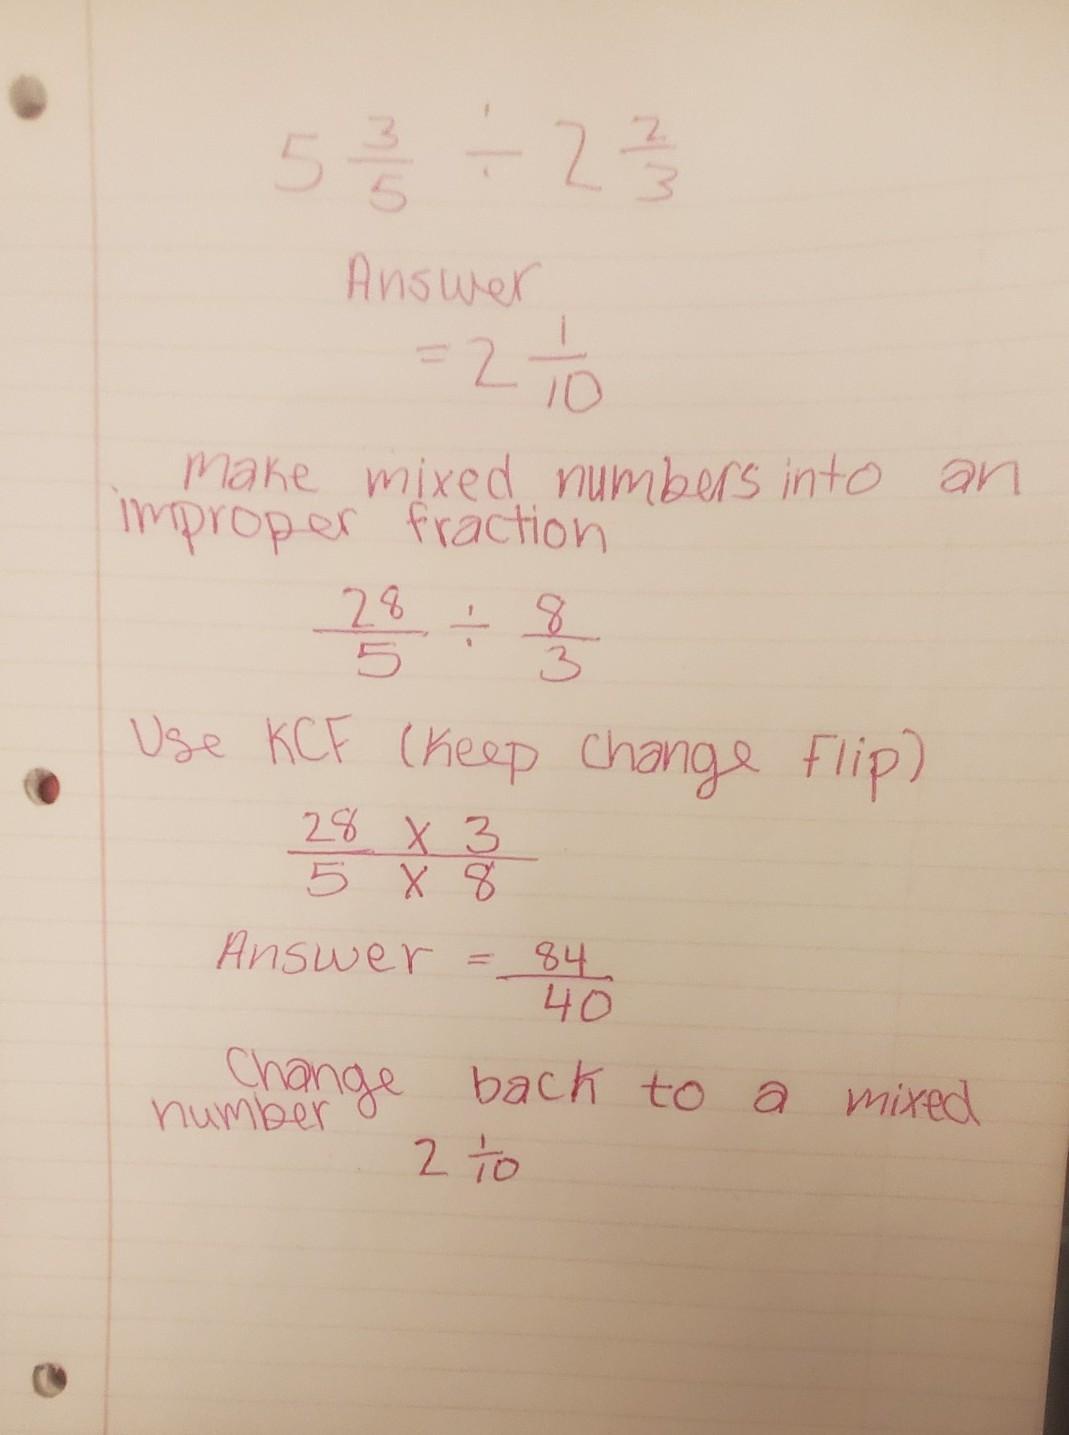 5 3/5 ÷ 2 2/3
Answer
= 2 1/10
Make mixed numbers into an
improper fraction
28/5 ÷ 8/3
Use KCF (Keep Change Flip)
28 x 3
5 x 8
Answer = 84/40
Change back to a mixed
number
2 1/10